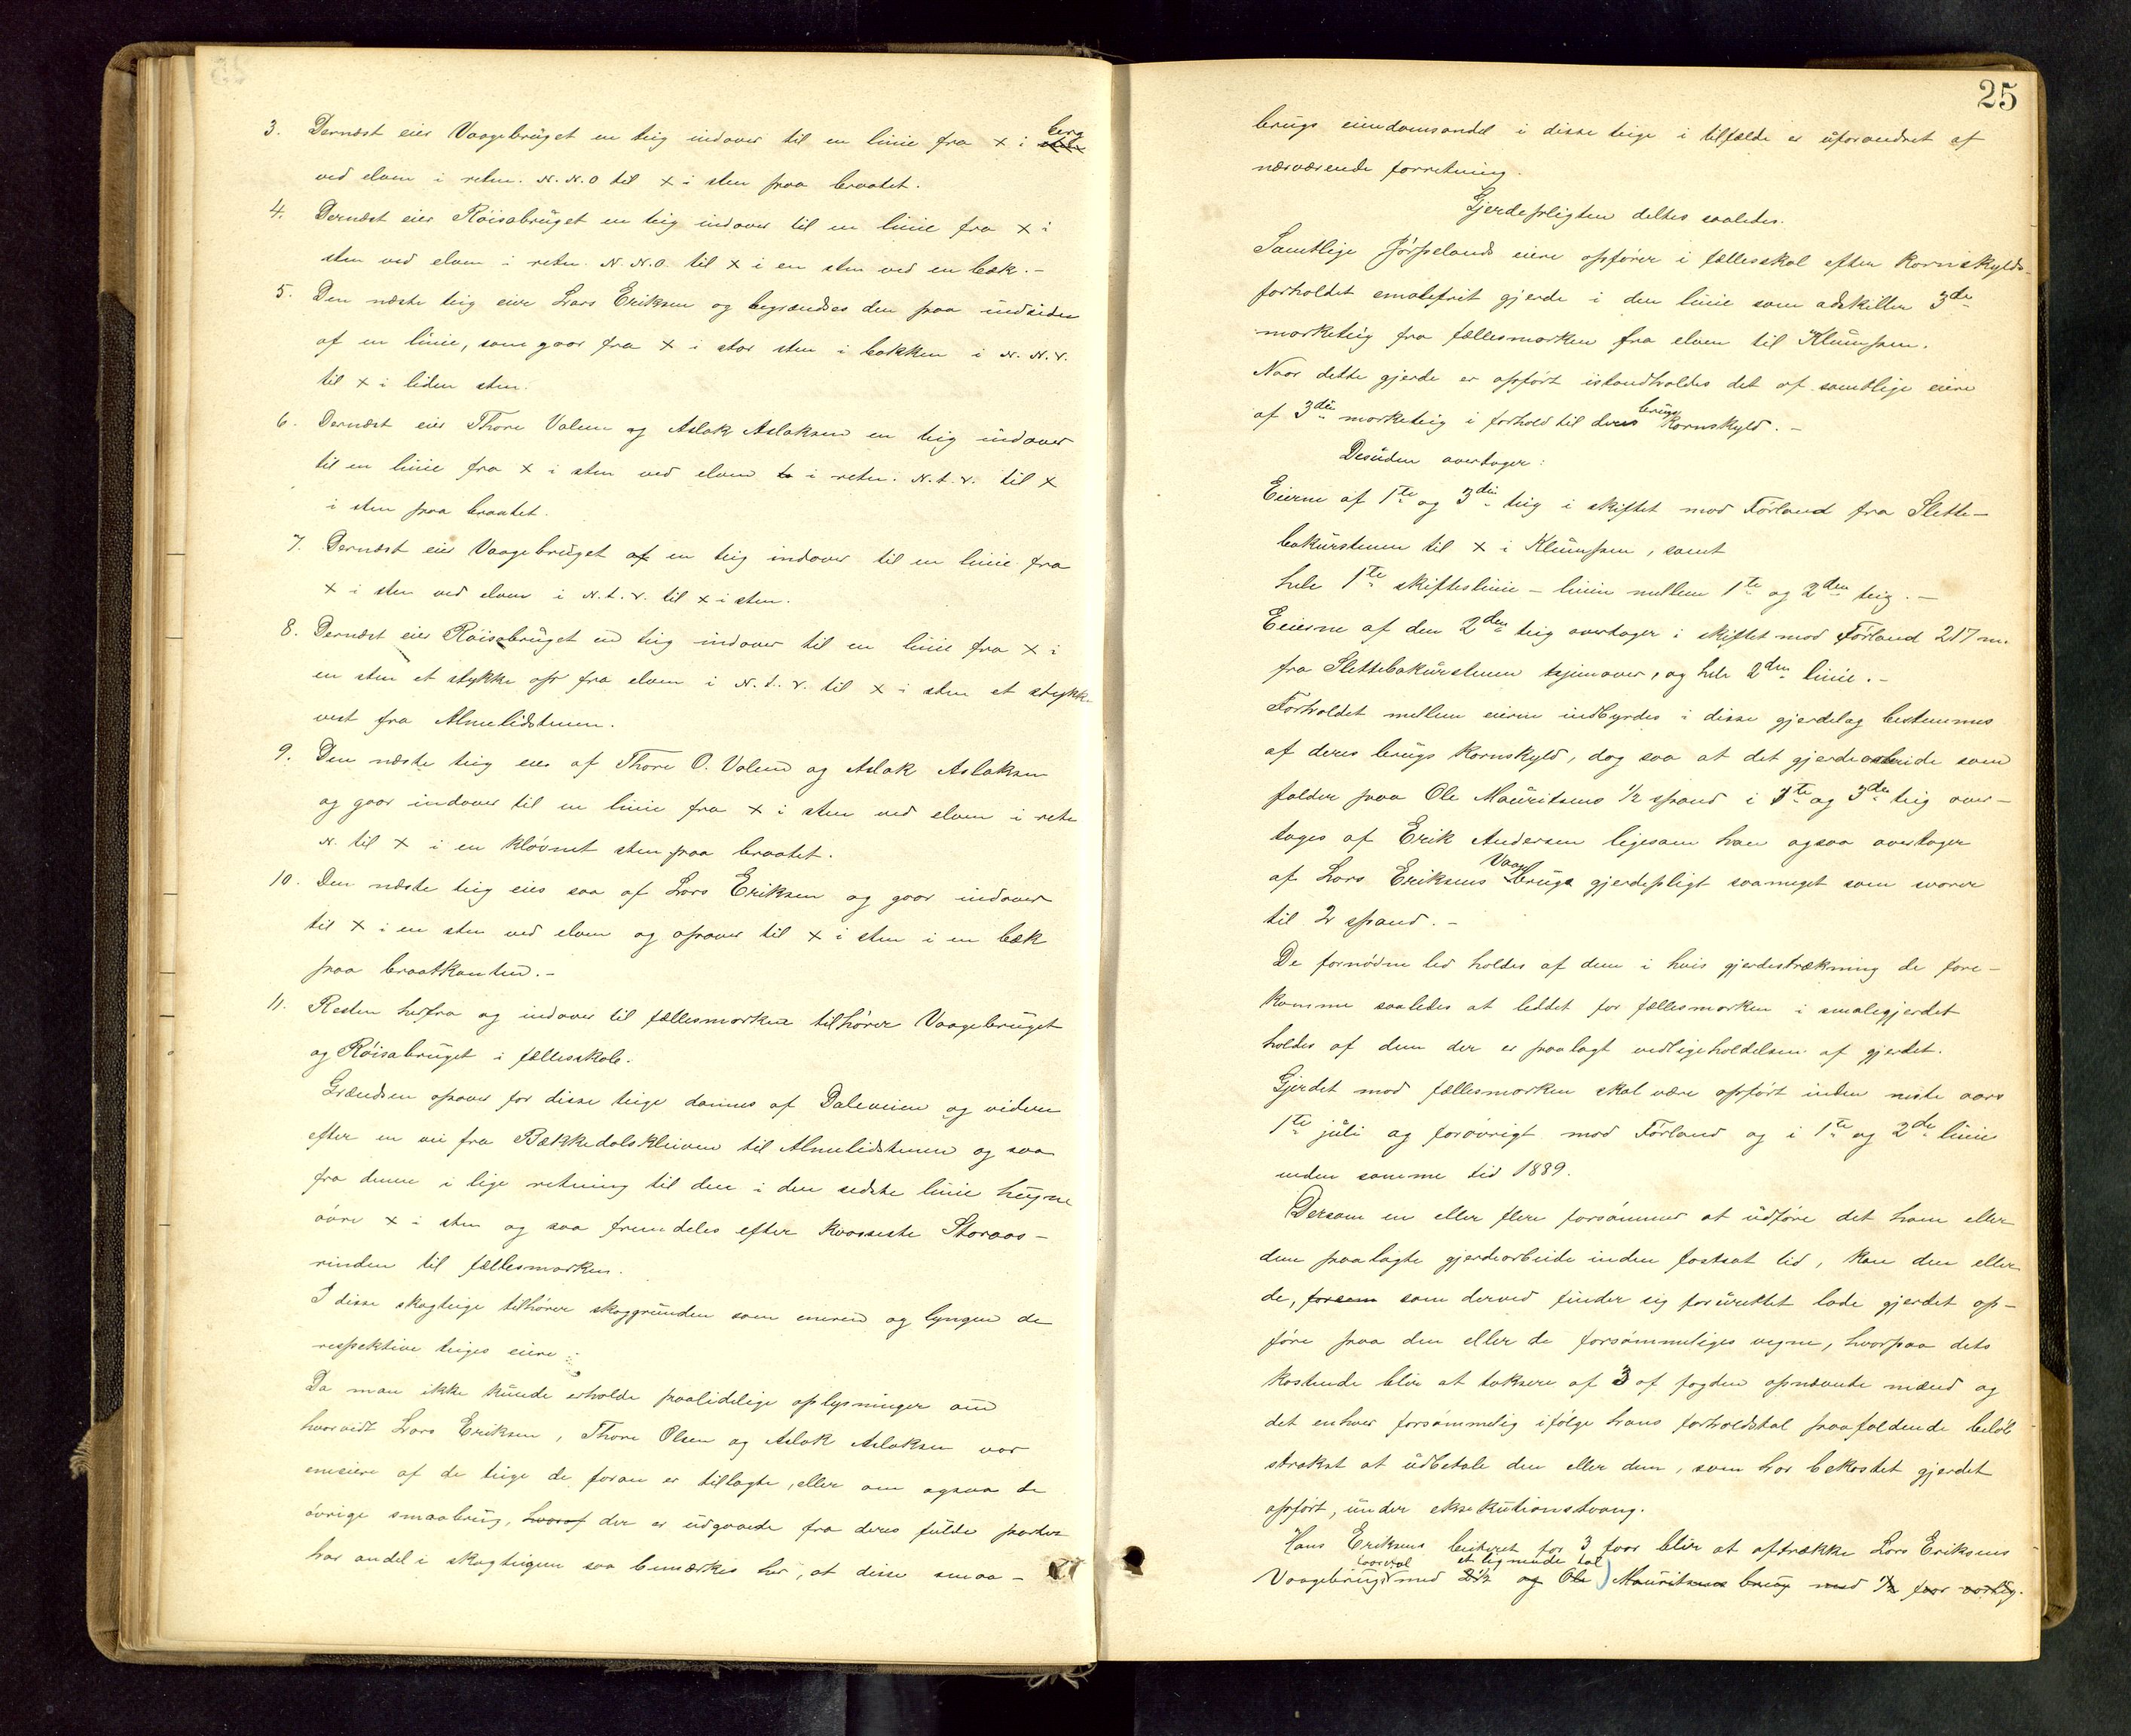 3. Dernæst eier Vaagebruget en teig indover til en linie fra x i berg
ved elven i retn. N.N.O til x i sten paa braatet.
4. Dernæst eier Röisabruget en teig indover til en linie fra x i
sten ved elven i retn. N.N.O. til x i en sten ved en bæk.-
5. Den næste teig eier Lars Eriksen og begrændses den paa indsiden
af en linie, som gaar fra x i stor sten i bakken i N.N.V.
til x i liden sten.
6. Dernæst eier Thore Valen og Aslak Aslaksen en teig indover
til en linie fra x i sten ved elven i retn. N.t.V. til x
i sten paa braatet.
7. Dernæst eier Vaagebruget af en teig indover til en linie fra
x i sten ved elven i N.t.V. til x i sten.
8. Dernæst eier Röisabruget en teig indover til en linie fra x i
en sten et stykke op fra elven i N.t.V. til x i sten et stykke
vest fra Almelidstenen.
9. Den næste teig eies af Thore O. Valen og Aslak Aslaksen
og gaar indover til en linie fra x i sten ved elven i retn
N. til x i en klövnet sten paa braatet.
10. Den næste teig eies saa af Lars Eriksen og gaar indover
til x i en sten ved elven og opover til x i sten i en bæk
paa braatkanten.-
11. Resten herfra og indover til fællesmarken tilhører Vaagebruget
og Röisabruget i fællesskab.
Grændsen opover for disse teige dannes af Daleveien og videre
efter en vei fra Bækkedalskleiven til Almelidstenen og saa
fra denne i lige retning til den i den sidste linie
øvre x i sten og saa fremdeles efter Storaas-
rinden til fællesmarken.
I disse skogteige tilhører skoggrunden som eneren og lyngen de
respektive teiges eiere.
Da man ikke kunde erholde paalidelige oplysninger om
hvorvidt Lars Eriksen, Thore Olsen og Aslak Aslaksen var
eneeiere af de teige de foran er tillagte, eller om ogsaa de
øvrige smaabrug, hvoraf der er udgaaede fra deres fulde parter
har andel i skogteigene saa bemærkes her, at disse smaa-
25
brugs eiendomsandel i disse teige i tilfælde er uforandret af
nærværende forretning.
Gjerdepligten deltes saaledes.
Samtlige Jörpelands eiere opfører i fællesskab efter Kornskylds-
forholdet smalefrit gjerde i den linie som adskiller 3de
marketeig fra fællesmarken fra elven til Klumpen.
Naar dette gjerde er opført istandholdes det af samtlige eiere
af 3die marketeig i forhold til deres brugs Kornskyld.-
Desuden overtager:
Eierne af 1te og 3die teig i skiftet mod Förland fra Slette-
bakurstenen til x i Klumpen, samt
hele 1te skifteslinie - linien mellem 1te og 2den teig.-
Eeierne af den 2den teig overtager i skiftet mod Förland 217 m.
fra Slettebakurstenen hjemover, og hele 2den linie.-
Forholdet mellem eierne indbyrdes i disse gjerdelag bestemmes
af deres brugs Kornskyld, dog saa at det gjerdearbeide som
falder paa Ole Mauritsens 1/2 spand i 1te og 3de teig over-
tages af Erik Andersen ligesom han ogsaa overtager
af Lars Eriksens Vaagbrugs gjerdepligt saameget som svarer
til 2 spand.-
De fornödne led holdes af dem i hvis gjerdestrækning de fore-
komme saaledes at leddet for fællesmarken i smalegjerdet
holdes af dem der er paalagt vedligeholdelsen af gjerdet.
Gjerdet mod fællesmarken skal være opfört inden neste aars
1te juli og forövrigt mod Förland og i 1te og 2de linie
inden samme tid 1889.
Dersom en eller flere forsömmer at udføre det ham eller
dem paalagte gjerdearbeide inden fastsat tid, kan den eller
de, forsom som derved finder sig forurettet lade gjerdet op-
føre paa den eller de forsömmeliges vegne, hvorpaa dets
kostende blir at taksere af 3 af fogden opnævnte mænd og
det enhver forsömmelig ifølge hans forholdstal paafaldende belöb
strakst at udbetale den eller dem, som har bekostet gjerdet
opfört, under eksekutionstvang.
Hans Eriksens beiteret for 3 faar blir at aftrække Lars Eriksens
Vaagebrugs faaretal med 2 1/2 et lignende tal og Ole Mauritsens brug med 1/2 faar aarlig.